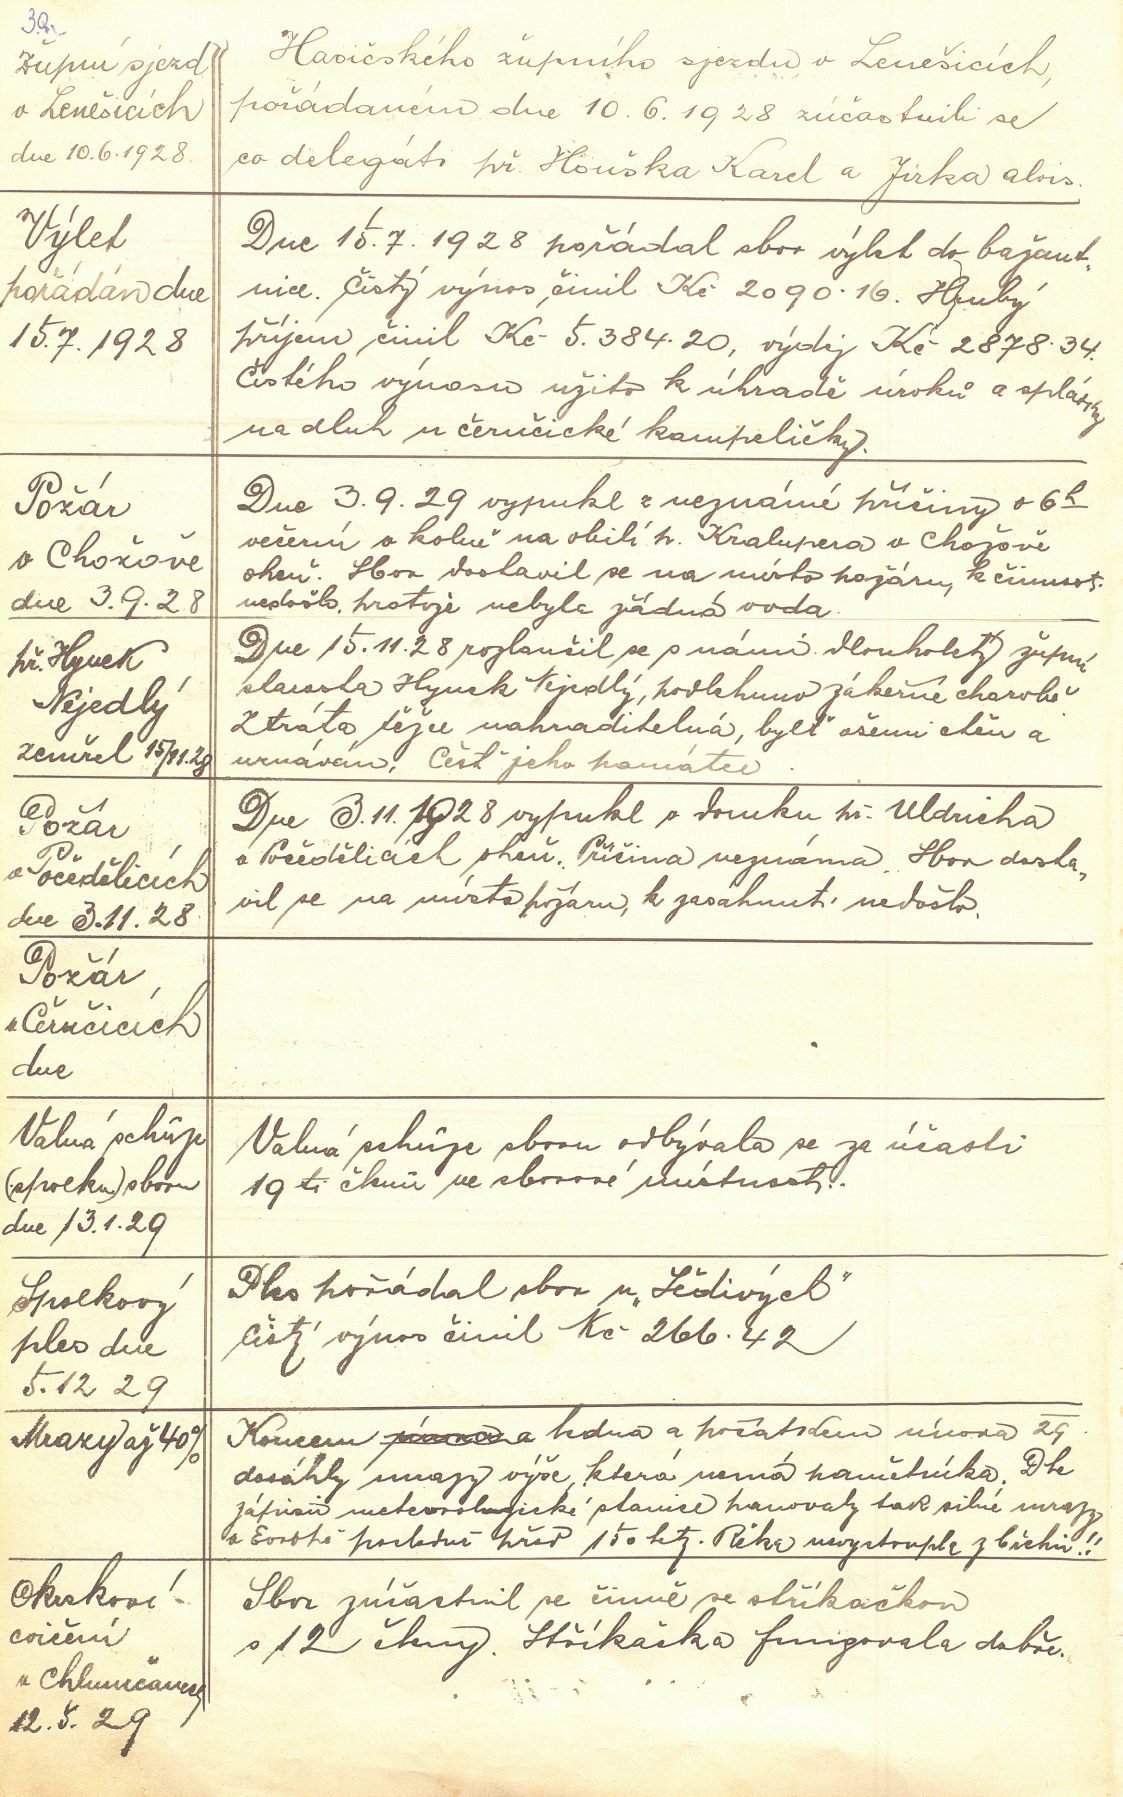 32.
Župní sjezd
v Lenešicích
dne 10.6.1928.
Hasičského župního sjezdu v Lenešicích,
pořádaném dne 10.6.1928 zúčastnili se
co delegáti př. Houška Karel a Jirka alois.
Výlet
pořádán dne
15.7.1928
Dne 15.7.1928 pořádal sbor výlet do bažant„
nice. Čistý výnos činil Kč 2090.16. Hrubý
příjem činil Kč 5.384.20, výdej Kč 2878.34.
Čistého výnosu užito k úhradě úroků a splátky
na dluh u černčické kampeličky.
Požár
v Chožově
dne 3.9.28
Dne 3.9.29 vypukl z neznámé příčiny o 6h
večerní v kolně na obilí p. Kralupera v Chožově
oheň. Sbor dostavil se na místo požáru, k činnosti
nedošlo, protože nebyla žádná voda.
př. Hynek
Nejedlý
zemřel 15/11.28
Dne 15.11.28 rozloučil se s námi dlouholetý župní
starosta Hynek Nejedlý, podlehnuv zákeřné chorobě
Ztráta těžce nahraditelná, bylť všemi ctěn a
uznáván. Čest jeho památce.
Požár
v Počedělicích
dne 3.11.28
Dne 3.11.1928 vypukl v domku p. Uldricha
v Počedělicích oheň. Příčina neznáma. Sbor dosta„
vil se na místo požáru, k zasáhnutí nedošlo.
Požár
v Černčicích
dne
Valná schůze
(spolku) sboru
dne 13.1.29
Valná schůze sboru odbývala se za účasti
19 ti členů ve sborové místnosti.
Spolkový
ples dne
5.12 29
Ples pořádal sbor u „Šedivých"
Čistý výnos činil Kč 266.42
Mrazy až 40%
Koncem února a ledna a počátkem února 29.
dosáhly mrazy výše, která nemá pamětníka. Dle
zápisů meteorologické stanice panovaly tak silné mrazy
v Evropě posledně před 150 lety. Řeka nevystoupla z břehů!!
Okrskové
cvičení
v Chlumčanech
12.5.29
Sbor zúčastnil se činně se stříkačkou
s 12 členy. Stříkačka fungovala dobře.